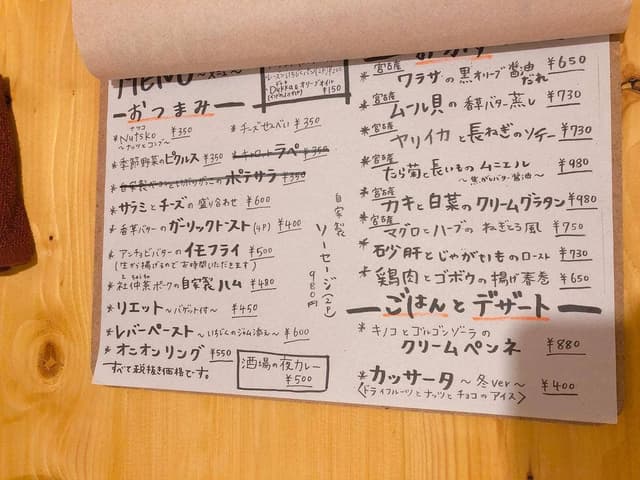 MENU ~メニュー~
おつまみ
* Nutsko ナツコ ¥350
~ナッツとコンブ~
* チーズせんべい ¥350
* 季節野菜のピクルス ¥350
* キャロットラペ ¥350
ポテサラ ¥350
* サラミとチーズの盛り合わせ ¥600
* 香草バターのガーリックトースト(4P) ¥400
* アンチョビバターのイモフライ ¥500
(生から揚げるのでお時間いただきます)
* 杜仲茶ポークの自家製ハム ¥480
* リエット ~バゲット付~ ¥450
* レバーペースト ~いちじくのジャム添え~ ¥600
* オニオンリング ¥550
すべて税抜き価格です。
オリーブオイル
¥150
自家製
ソーセージ(2P)
980円
酒場の夜カレー
¥500
おかず
* 宮古産 ワラサの黒オリーブ醤油だれ ¥650
* 宮古産 ムール貝の香草バター蒸し ¥730
* 宮古産 ヤリイカと長ねぎのソテー ¥730
* 宮古産 たら菊と長いものムニエル ¥980
~焦がしバター醤油~
* 宮古産 カキと白菜のクリームグラタン ¥980
* 宮古産 マグロとハーブのねぎとろ風 ¥750
* 砂肝とじゃがいものロースト ¥730
* 鶏肉とゴボウの揚げ春巻 ¥650
ごはんとデザート
* キノコとゴルゴンゾーラの
クリームペンネ ¥880
* カッサータ ~冬ver~ ¥400
<ドライフルーツとナッツとチョコのアイス>